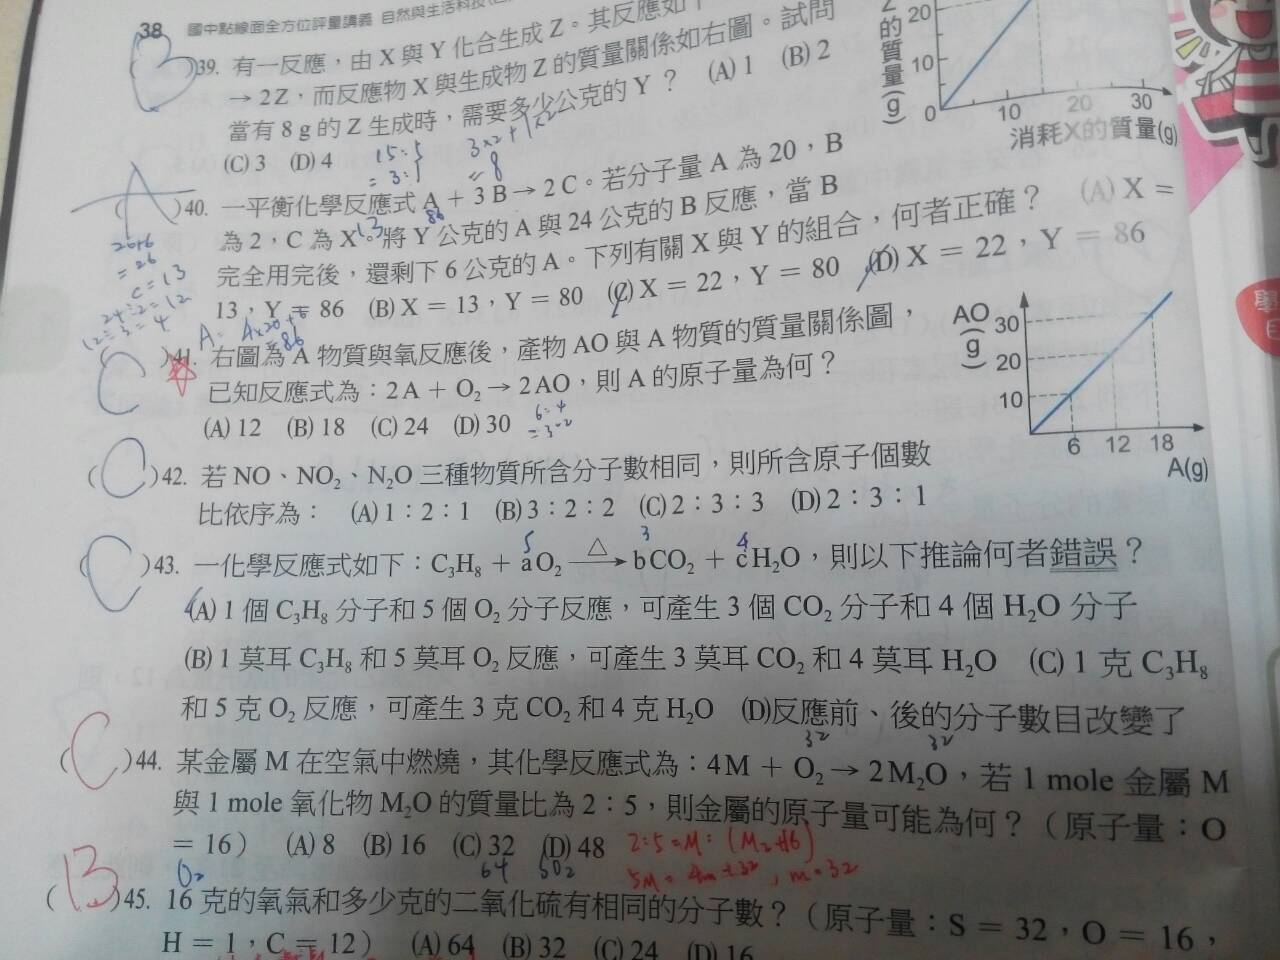 38 國中點線面全方位評量講義 自然與生活科技
(B)39. 有一反應，由 X 與 Y 化合生成 Z。其反應如
→ 2Z，而反應物 X 與生成物 Z 的質量關係如右圖。試問
當有 8 g 的 Z 生成時，需要多少公克的 Y？ (A) 1 (B) 2
(C) 3 (D) 4
15:5
= 3:1
3×2+1×2
= 8
的質量(g)
20
10
0 10 20 30
消耗X的質量(g)
(A)40. 一平衡化學反應式 A + 3 B → 2 C。若分子量 A 為 20，B
為 2，C 為 X。將 Y 公克的 A 與 24 公克的 B 反應，當 B
完全用完後，還剩下 6 公克的 A。下列有關 X 與 Y 的組合，何者正確？ (A) X =
13，Y = 86 (B) X = 13，Y = 80 (C) X = 22，Y = 80 (D) X = 22，Y = 86
86
13
20+6
= 26
C = 13
24÷2=12
12÷3=4
A= 4×20+6
=86
(C)41. 右圖為 A 物質與氧反應後，產物 AO 與 A 物質的質量關係圖，
已知反應式為：2 A + O₂ → 2 AO，則 A 的原子量為何？
(A) 12 (B) 18 (C) 24 (D) 30
6:4
=3:2
AO
(g)
30
20
10
6 12 18
A(g)
(C)42. 若 NO、NO₂、N₂O 三種物質所含分子數相同，則所含原子個數
比依序為： (A) 1：2：1 (B) 3：2：2 (C) 2：3：3 (D) 2：3：1
5 3 4
(C)43. 一化學反應式如下：C₃H₈ + a O₂ △→ b CO₂ + c H₂O，則以下推論何者錯誤？
(A) 1 個 C₃H₈ 分子和 5 個 O₂ 分子反應，可產生 3 個 CO₂ 分子和 4 個 H₂O 分子
(B) 1 莫耳 C₃H₈ 和 5 莫耳 O₂ 反應，可產生 3 莫耳 CO₂ 和 4 莫耳 H₂O (C) 1 克 C₃H₈
和 5 克 O₂ 反應，可產生 3 克 CO₂ 和 4 克 H₂O (D)反應前、後的分子數目改變了
32 32
(C)44. 某金屬 M 在空氣中燃燒，其化學反應式為：4 M + O₂ → 2 M₂O，若 1 mole 金屬 M
與 1 mole 氧化物 M₂O 的質量比為 2：5，則金屬的原子量可能為何？（原子量：O
= 16） (A) 8 (B) 16 (C) 32 (D) 48
2:5=M:(M2+16)
5M=4m+32, m=32
O₂ 64 SO₂
(B)45. 16 克的氧氣和多少克的二氧化硫有相同的分子數？（原子量：S = 32，O = 16，
H = 1，C = 12） (A) 64 (B) 32 (C) 24 (D) 16